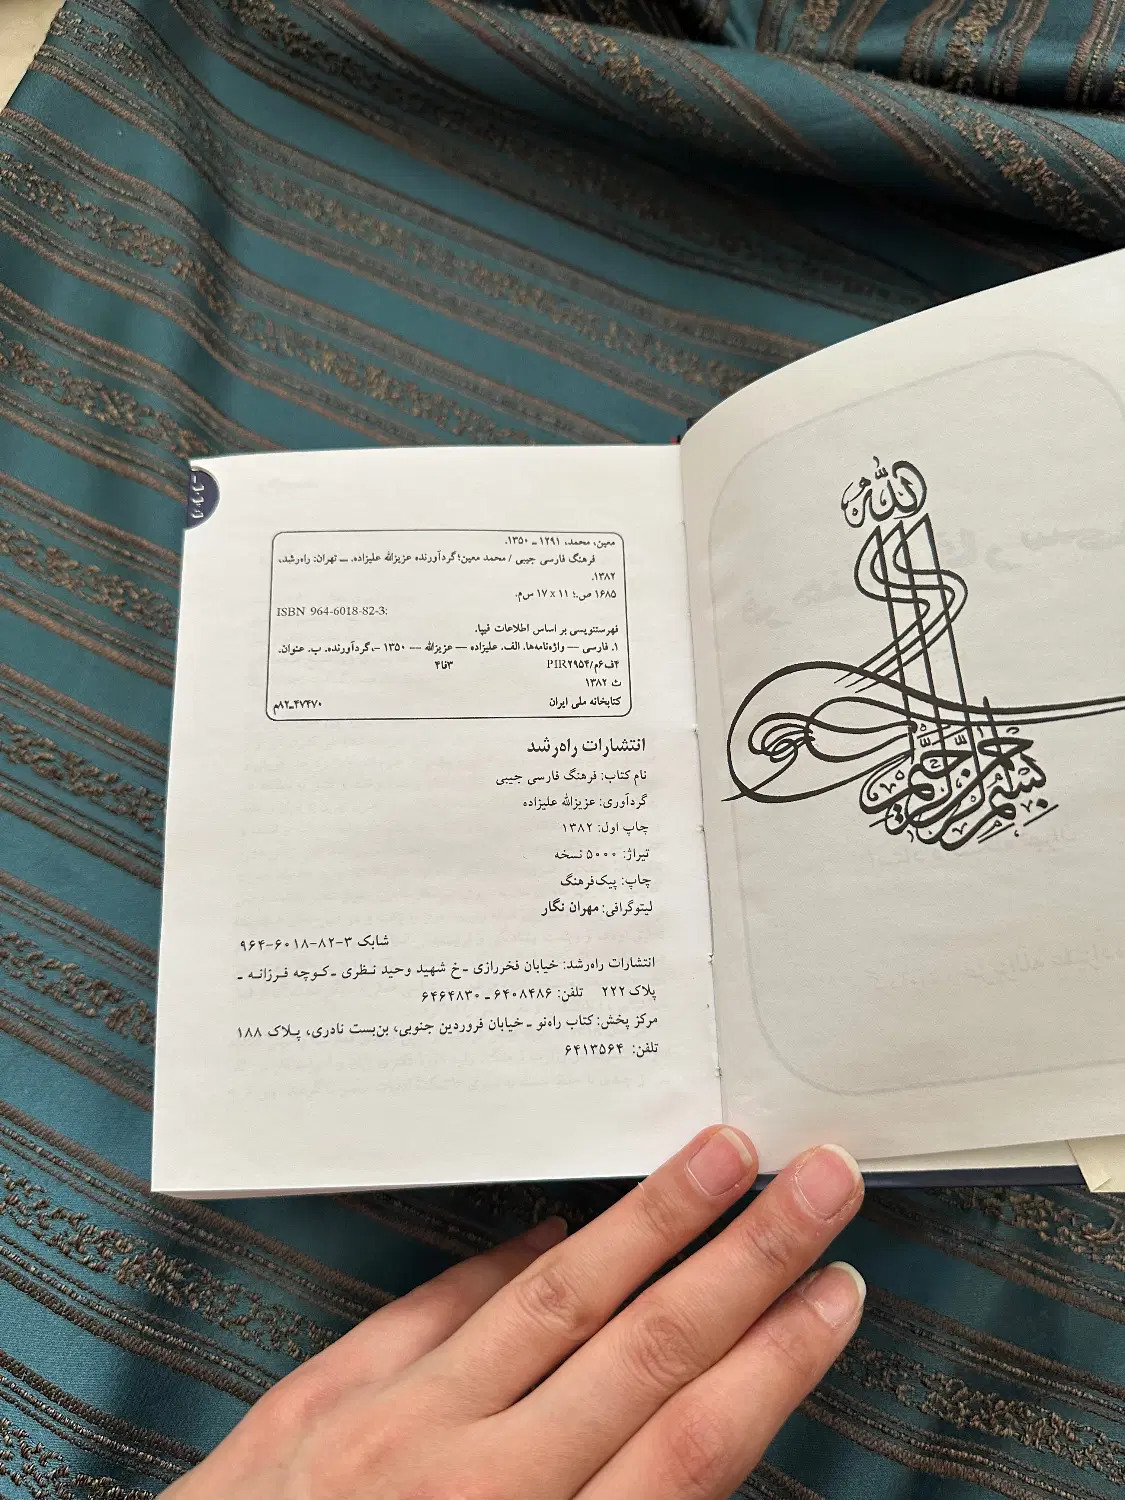 بسم الله الرحمن الرحیم
معین، محمد، ۱۲۹۱ ـ ۱۳۵۰.
فرهنگ فارسی جیبی / محمد معین؛ گردآورنده عزیزالله علیزاده. ــ تهران: راه‌رشد،
۱۳۸۲.
۱۶۸۵ ص.؛ ۱۱ x ۱۷ س‌م.
ISBN 964-6018-82-3:
فهرستنویسی بر اساس اطلاعات فیپا.
۱. فارسی — واژه‌نامه‌ها. الف. علیزاده — عزیزالله –– ۱۳۵۰ -،گردآورنده. ب. عنوان.
۴ف۶م/PIR۲۹۵۴ ۴فا۳
ث ۱۳۸۲
کتابخانه ملی ایران ۴۷۴۷۰ـ۸۲م
انتشارات راه‌رشد
نام کتاب: فرهنگ فارسی جیبی
گردآوری: عزیزالله علیزاده
چاپ اول: ۱۳۸۲
تیراژ: ۵۰۰۰ نسخه
چاپ: پیک‌فرهنگ
لیتوگرافی: مهران نگار
شابک ۳-۸۲-۶۰۱۸-۹۶۴
انتشارات راه‌رشد: خیابان فخررازی ـ خ شهید وحید نـظری ـ کـوچه فـرزانـه ـ
پلاک ۲۲۲ تلفن: ۶۴۰۸۴۸۶ ـ ۶۴۶۴۸۳۰
مرکز پخش: کتاب راه‌نو ـ خیابان فروردین جنوبی، بن‌بست نادری، پـلاک ۱۸۸
تلفن: ۶۴۱۳۵۶۴